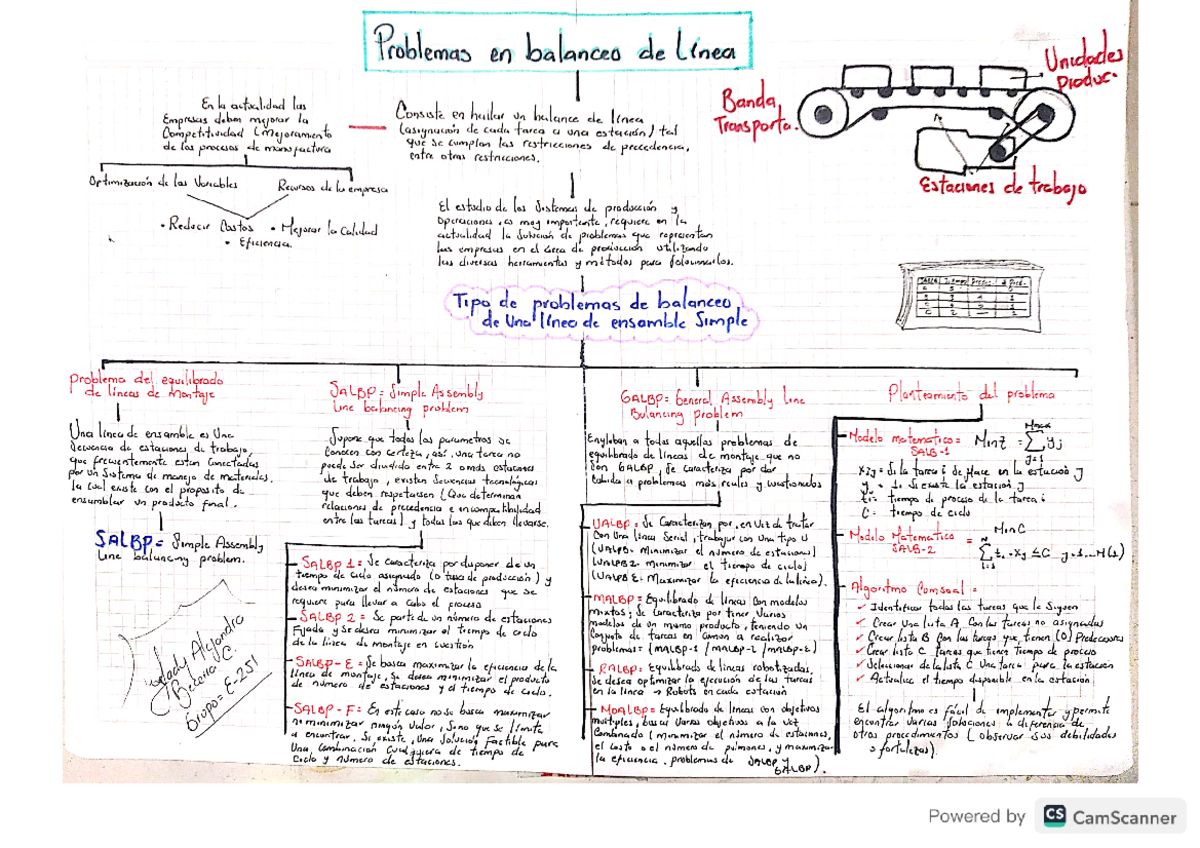 Problemas en balanceo de línea
En la actualidad las
Empresas deben mejorar la
Competitividad (Mejoramiento
de los procesos de manufactura
Optimización de las Variables
Recursos de la empresa
• Reducir Costos • Mejorar la Calidad
• Eficiencia
Consiste en hallar un balance de línea
(asignación de cada tarea a una estación) tal
que se cumplan las restricciones de precedencia,
entre otras restricciones.
El estudio de los Sistemas de producción y
Operaciones, es muy importante, requiere en la
actualidad la solución de problemas que representan
las empresas en el área de producción utilizando
las diversas herramientas y métodos para solucionarlos.
Banda
Transporta.
Unidades
Produc.
Estaciones de trabajo
Tipo de problemas de balanceo
de Una línea de ensamble Simple
Problema del equilibrado
de líneas de Montaje
Una línea de ensamble es Una
Secuencia de estaciones de trabajo,
que frecuentemente están Conectadas
por un Sistema de manejo de materiales.
la cual existe con el proposito de
ensamblar un producto final.
SALBP = Simple Assembly
Line balancing problem.
Grupo = E-251
SALBP = Simple Assembly
Line balancing problem
Supone que todos los parametros se
Conocen con certeza, así, una tarea no
puede Ser dividida entre 2 o más estaciones
de trabajo, existen secuencias tecnológicas
que deben respetarsen (Que determinan
relaciones de precedencia e incompatibilidad
entre las tareas) y todas las que deben llevarse.
SALBP 1 = Se caracteriza por disponer de un
tiempo de ciclo asignado (o tasa de producción) y
desea minimizar el número de estaciones que se
requiere para llevar a Cabo el proceso
SALBP 2 = Se parte de un número de estaciones
Fijada y Se desea minimizar el tiempo de ciclo
de la línea de montaje en cuestión
SALBP-E = Se busca maximizar la eficiencia de la
línea de montaje, se desea minimizar el producto
de número de estaciones y el tiempo de ciclo.
SALBP-F = En este caso no se busca maximizar
ni minimizar ningún valor, Sino que se limita
a encontrar. Si existe, una Solución Factible para
Una, Combinación Cualquiera de tiempo de
Ciclo y número de estaciones.
GALBP = General Assembly Line
Balancing problem
Engloban a todas aquellas problemas de
equilibrado de líneas de montaje que no
Son GALBP, Se caracteriza por dar
Cabida a problemas más reales y
UALBP = Se Caracterizan por, en vez de tratar
Con Una línea Serial, trabajar con Una tipo U
(UALPB- Minimizar el número de estaciones)
(UALPB2- minimizar el tiempo de ciclo)
(UALPB E: Maximizar la eficiencia de la línea).
MALBP = Equilibrado de líneas Con modelos
Mixtos, Se Caracteriza por tener Varios
modelos de un mismo producto, teniendo Un
Conjunto de tareas en Común a realizar
problemas = (MALBP-1 / MALBP-2 / MALBP-E)
RALBP = Equilibrado de líneas robotizadas,
Se desea optimizar la ejecución de las tareas
en la línea → Robots en cada estación
MOALBP = Equilibrado de líneas con objetivos
multiples, busca Varios objetivos a la vez
Combinado (minimizar el número de estaciones,
el costo o el número de pulmones, y maximizar
la eficiencia, problemas de SALBP y
GALBP).
Planteamiento del problema
Modelo matematico =
SALB-1
Min Z = Σ yj
j=1
xij = Si la tarea i Se Hace en la estación j
yj = Si Existe la estación j
ti = tiempo de proceso de la tarea i
C = tiempo de ciclo
Modelo Matematico
SALB-2
= Min C
Algoritmo Comsoal =
✓ Identificar todas las tareas que le Siguen
✓ Crear Una lista A Con las tareas no asignadas
✓ Crear lista B Con las tareas que tienen (0) Predecesores
✓ Crear lista C tareas que tienen Tiempo de proceso
✓ Seleccionar de la lista C Una tarea para la estación
✓ Actualice el tiempo disponible en la estación
El algoritmo es fácil de implementar y permite
encontrar Varias Soluciones a diferencia de
otros procedimientos (observar sus debilidades
o fortalezas).
Powered by CS CamScanner